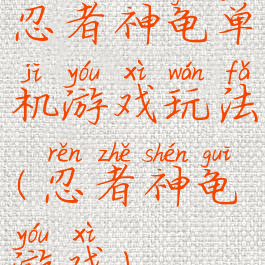 忍者神龟单
jī yóu xì wán fǎ
机游戏玩法
rěn zhě shén guī
(忍者神龟
yóu xì
游戏)